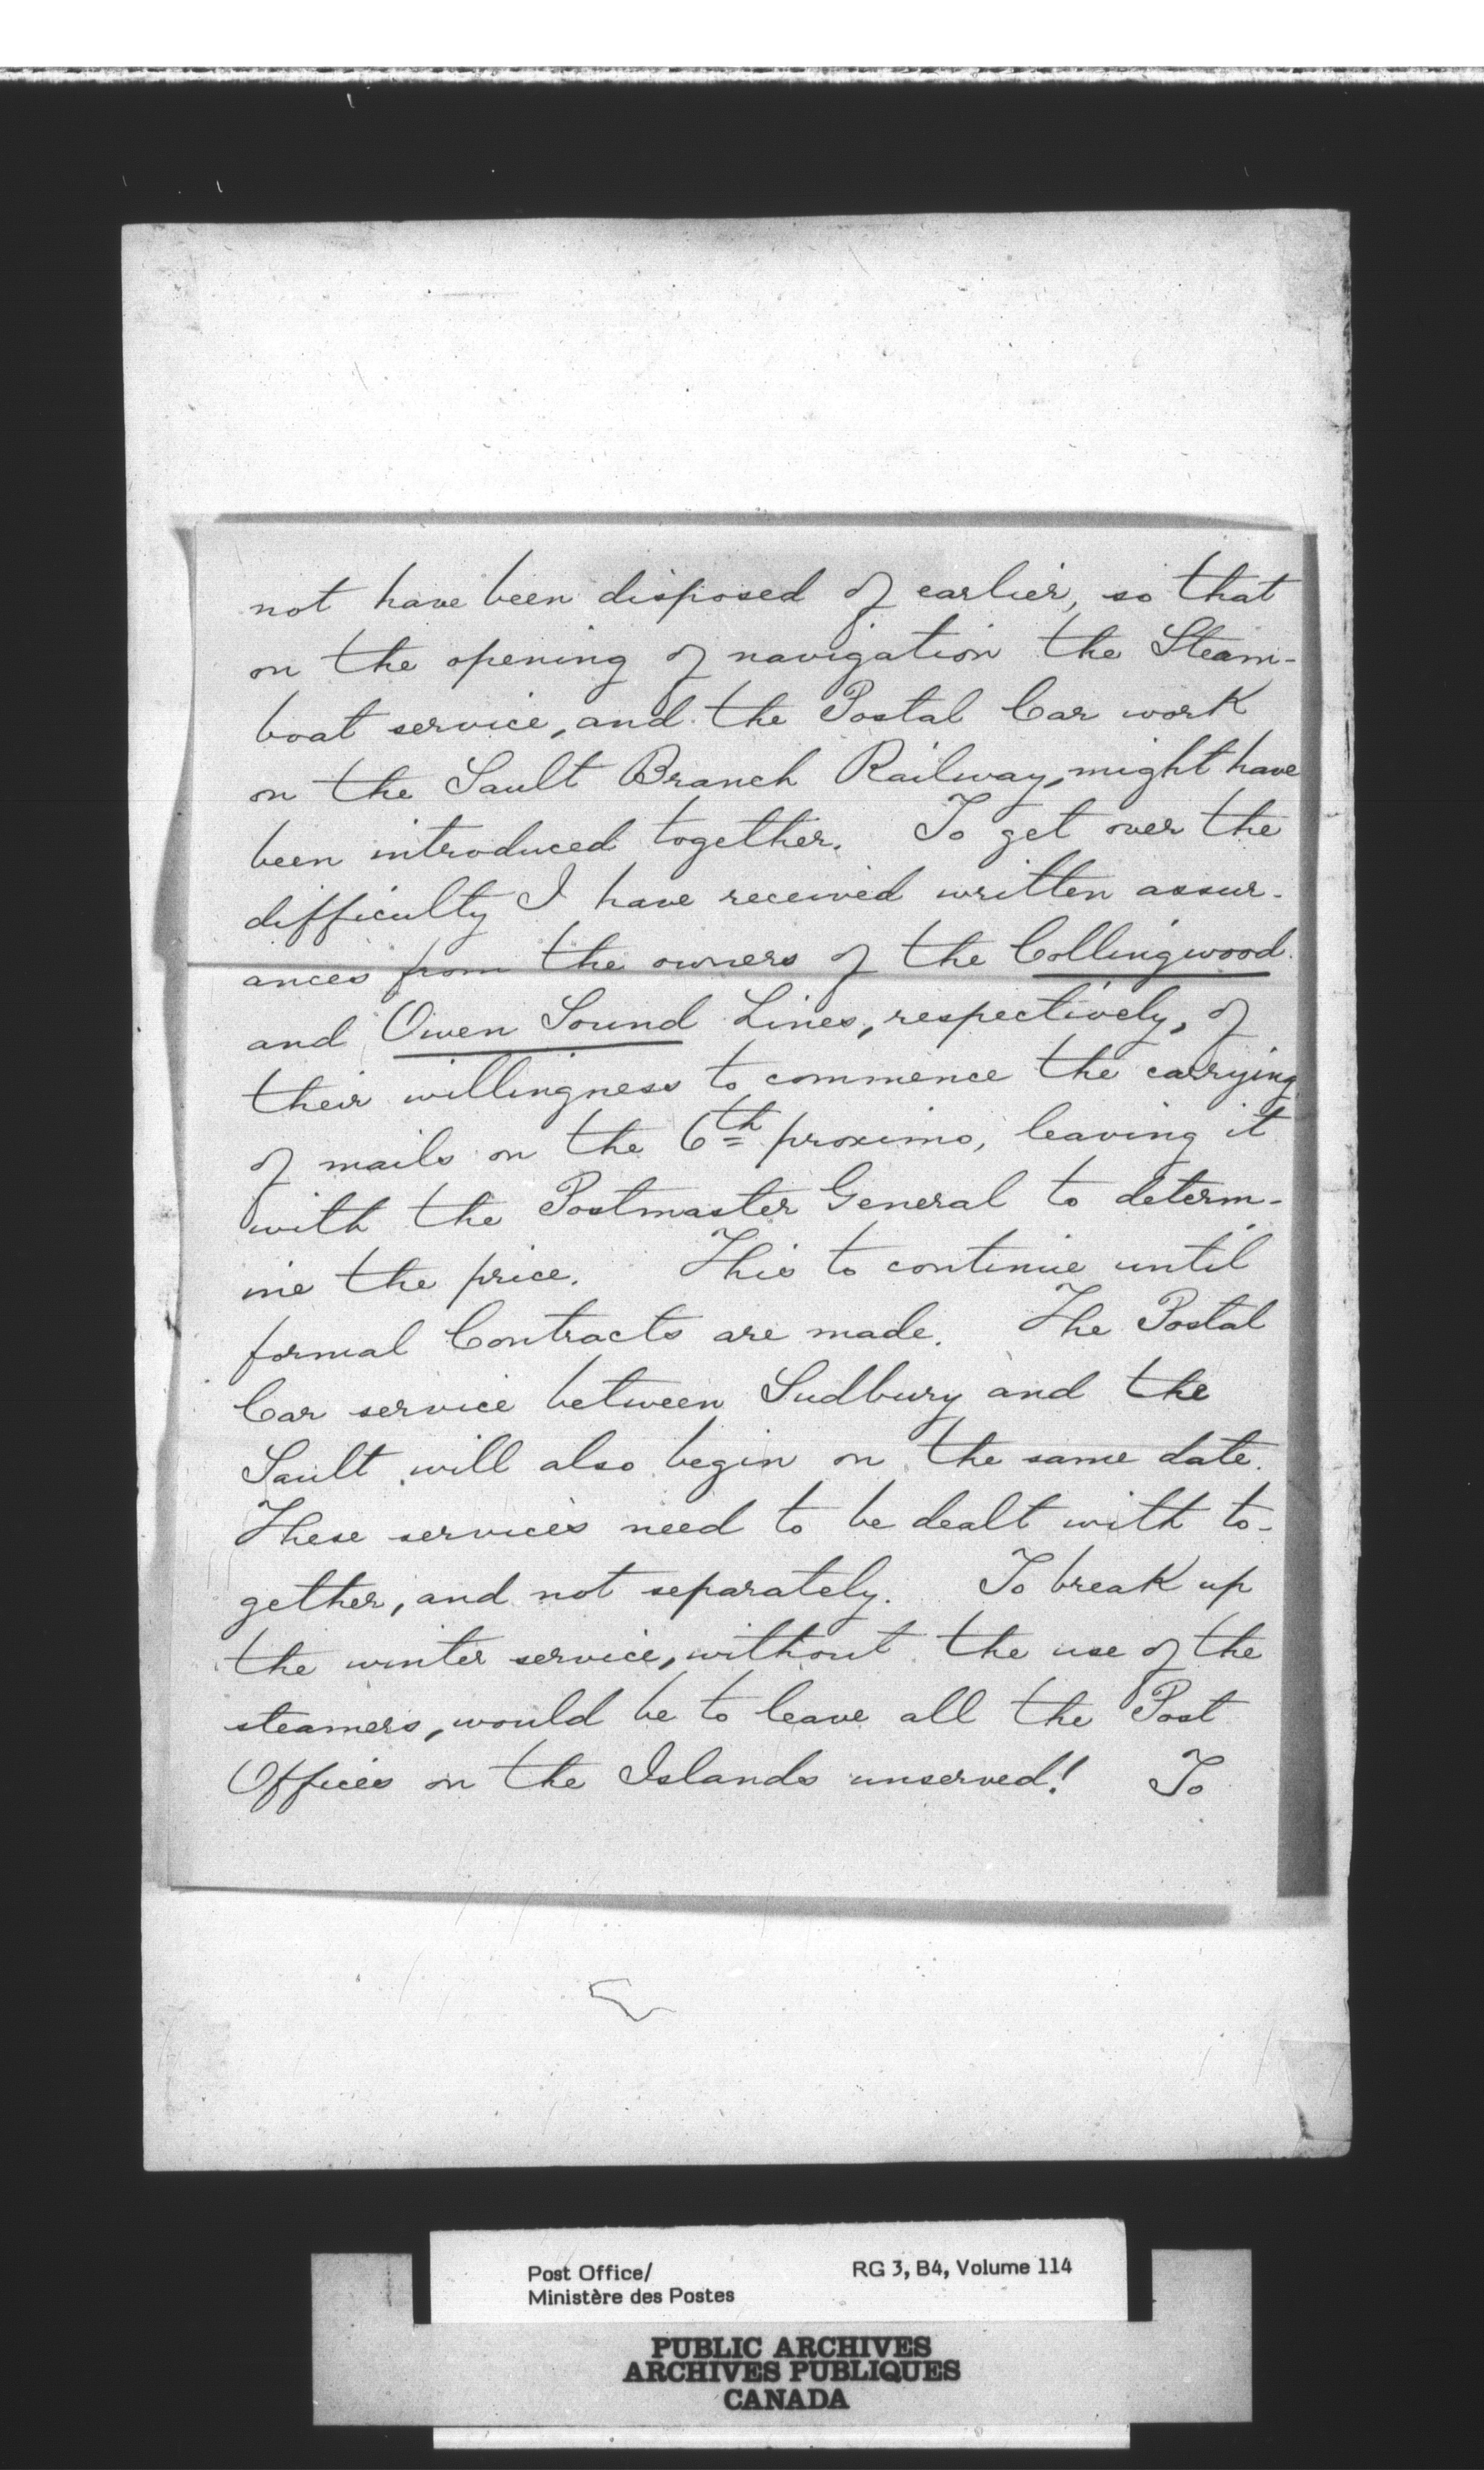 not have been disposed of earlier, so that
on the opening of navigation the Steam-
boat service, and the Postal Car work
on the Sault Branch Railway, might have
been introduced together. To get over the
difficulty I have received written assur-
ances from the owners of the Collingwood
and Owen Sound Lines, respectively, of
their willingness to commence the carrying
of mails on the 6th proximo, leaving it
with the Postmaster General to determ-
ine the price. This to continue until
formal Contracts are made. The Postal
Car service between Sudbury and the
Sault will also begin on the same date.
These services need to be dealt with to-
gether, and not separately. To break up
the winter service, without the use of the
steamers, would be to leave all the Post
Offices on the Islands unserved! To
Post Office/ RG 3, B4, Volume 114
Ministère des Postes
PUBLIC ARCHIVES
ARCHIVES PUBLIQUES
CANADA